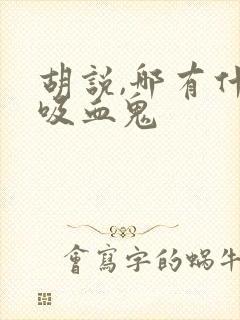 胡說,那有什
吸血鬼
會寫字的蝸牛